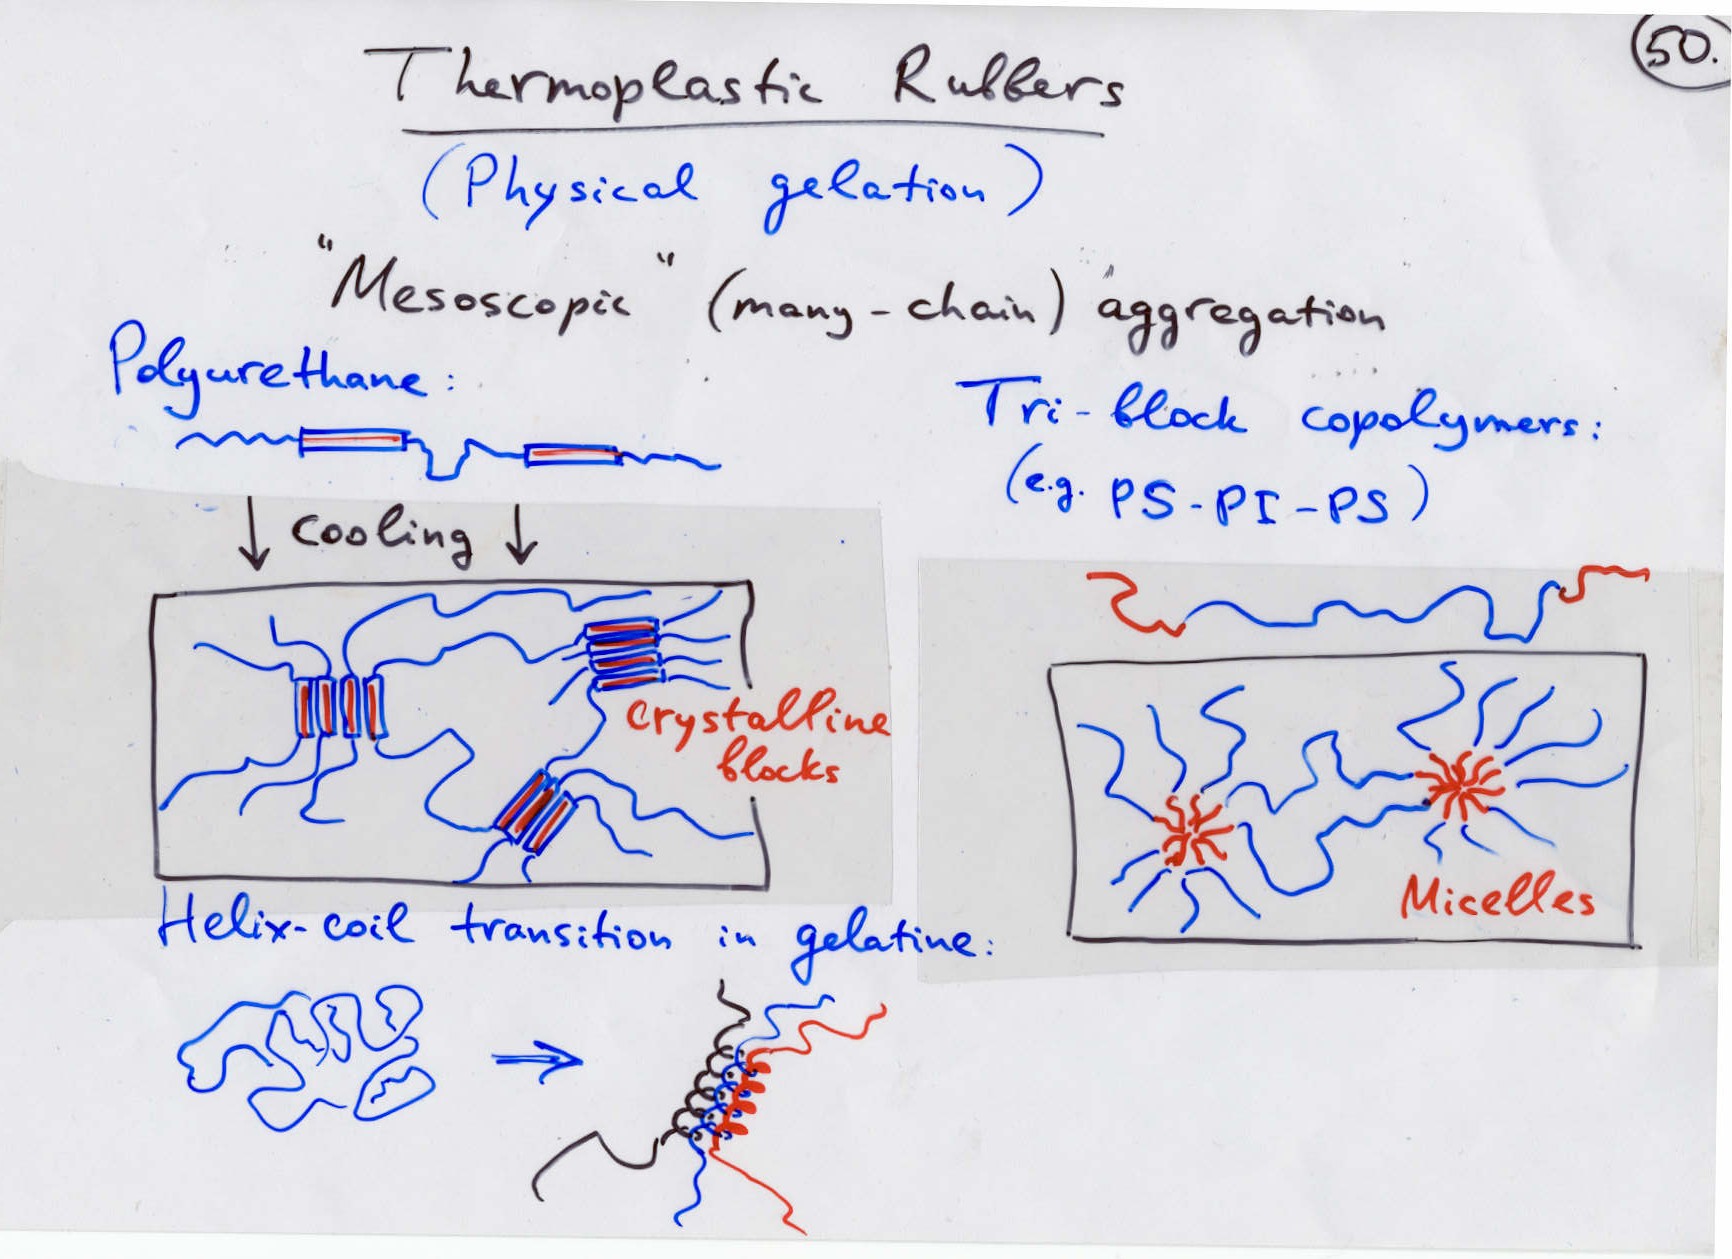 50.
Thermoplastic Rubbers
(Physical gelation)
"Mesoscopic" (many-chain) aggregation
Polyurethane:
↓ cooling ↓
crystalline
blocks
Tri-block copolymers:
(e.g. PS-PI-PS)
Micelles
Helix-coil transition in gelatine: